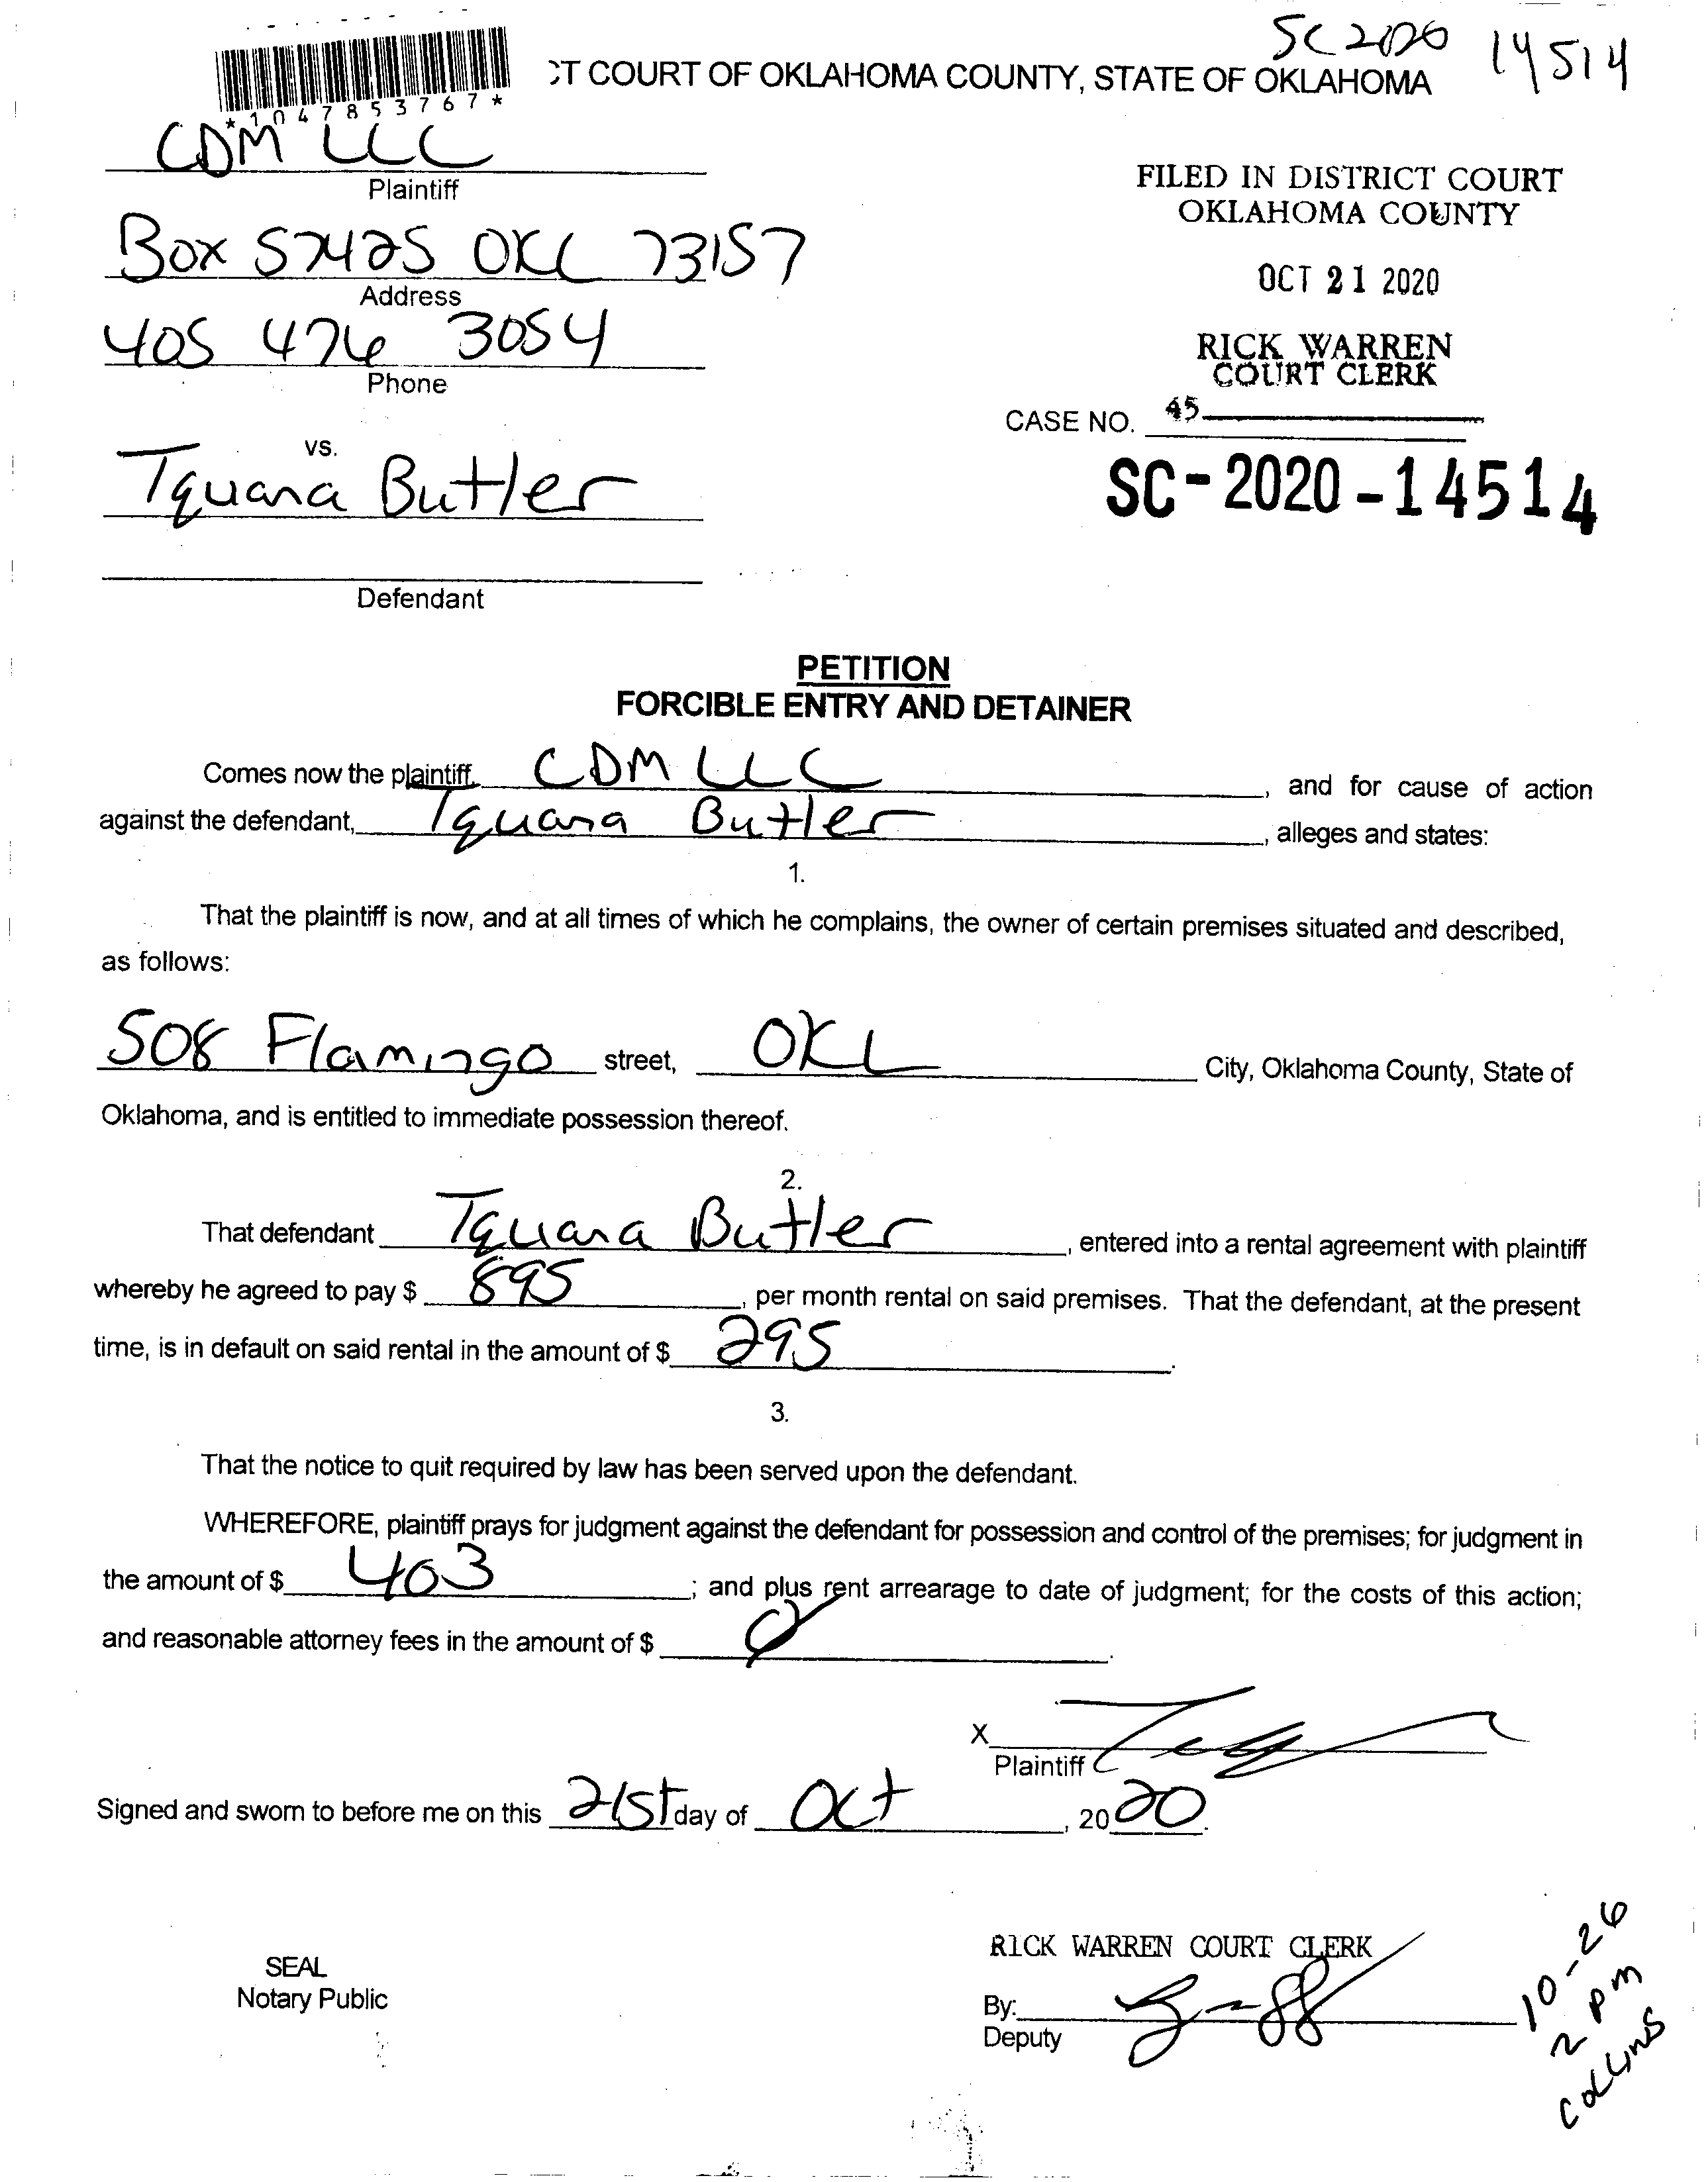 SC2020 14514
CT COURT OF OKLAHOMA COUNTY, STATE OF OKLAHOMA
*1047853767*
CDM LLC
Plaintiff
FILED IN DISTRICT COURT
OKLAHOMA COUNTY
Box 57425 OKC 73157
Address
OCT 21 2020
405 476 3054
Phone
RICK WARREN
COURT CLERK
CASE NO. 45
vs.
Tquana Butler
SC-2020-14514
Defendant
PETITION
FORCIBLE ENTRY AND DETAINER
Comes now the plaintiff, CDM LLC, and for cause of action
against the defendant, Tquana Butler, alleges and states:
1.
That the plaintiff is now, and at all times of which he complains, the owner of certain premises situated and described,
as follows:
508 Flamingo street, OKC City, Oklahoma County, State of
Oklahoma, and is entitled to immediate possession thereof.
2.
That defendant Tquana Butler, entered into a rental agreement with plaintiff
whereby he agreed to pay $ 895, per month rental on said premises. That the defendant, at the present
time, is in default on said rental in the amount of $ 295.
3.
That the notice to quit required by law has been served upon the defendant.
WHEREFORE, plaintiff prays for judgment against the defendant for possession and control of the premises; for judgment in
the amount of $ 403; and plus rent arrearage to date of judgment; for the costs of this action;
and reasonable attorney fees in the amount of $ 0.
X
Plaintiff
Signed and sworn to before me on this 21st day of Oct, 2020.
RICK WARREN COURT CLERK
SEAL
Notary Public
By:
Deputy
10-26
2 pm
Collins